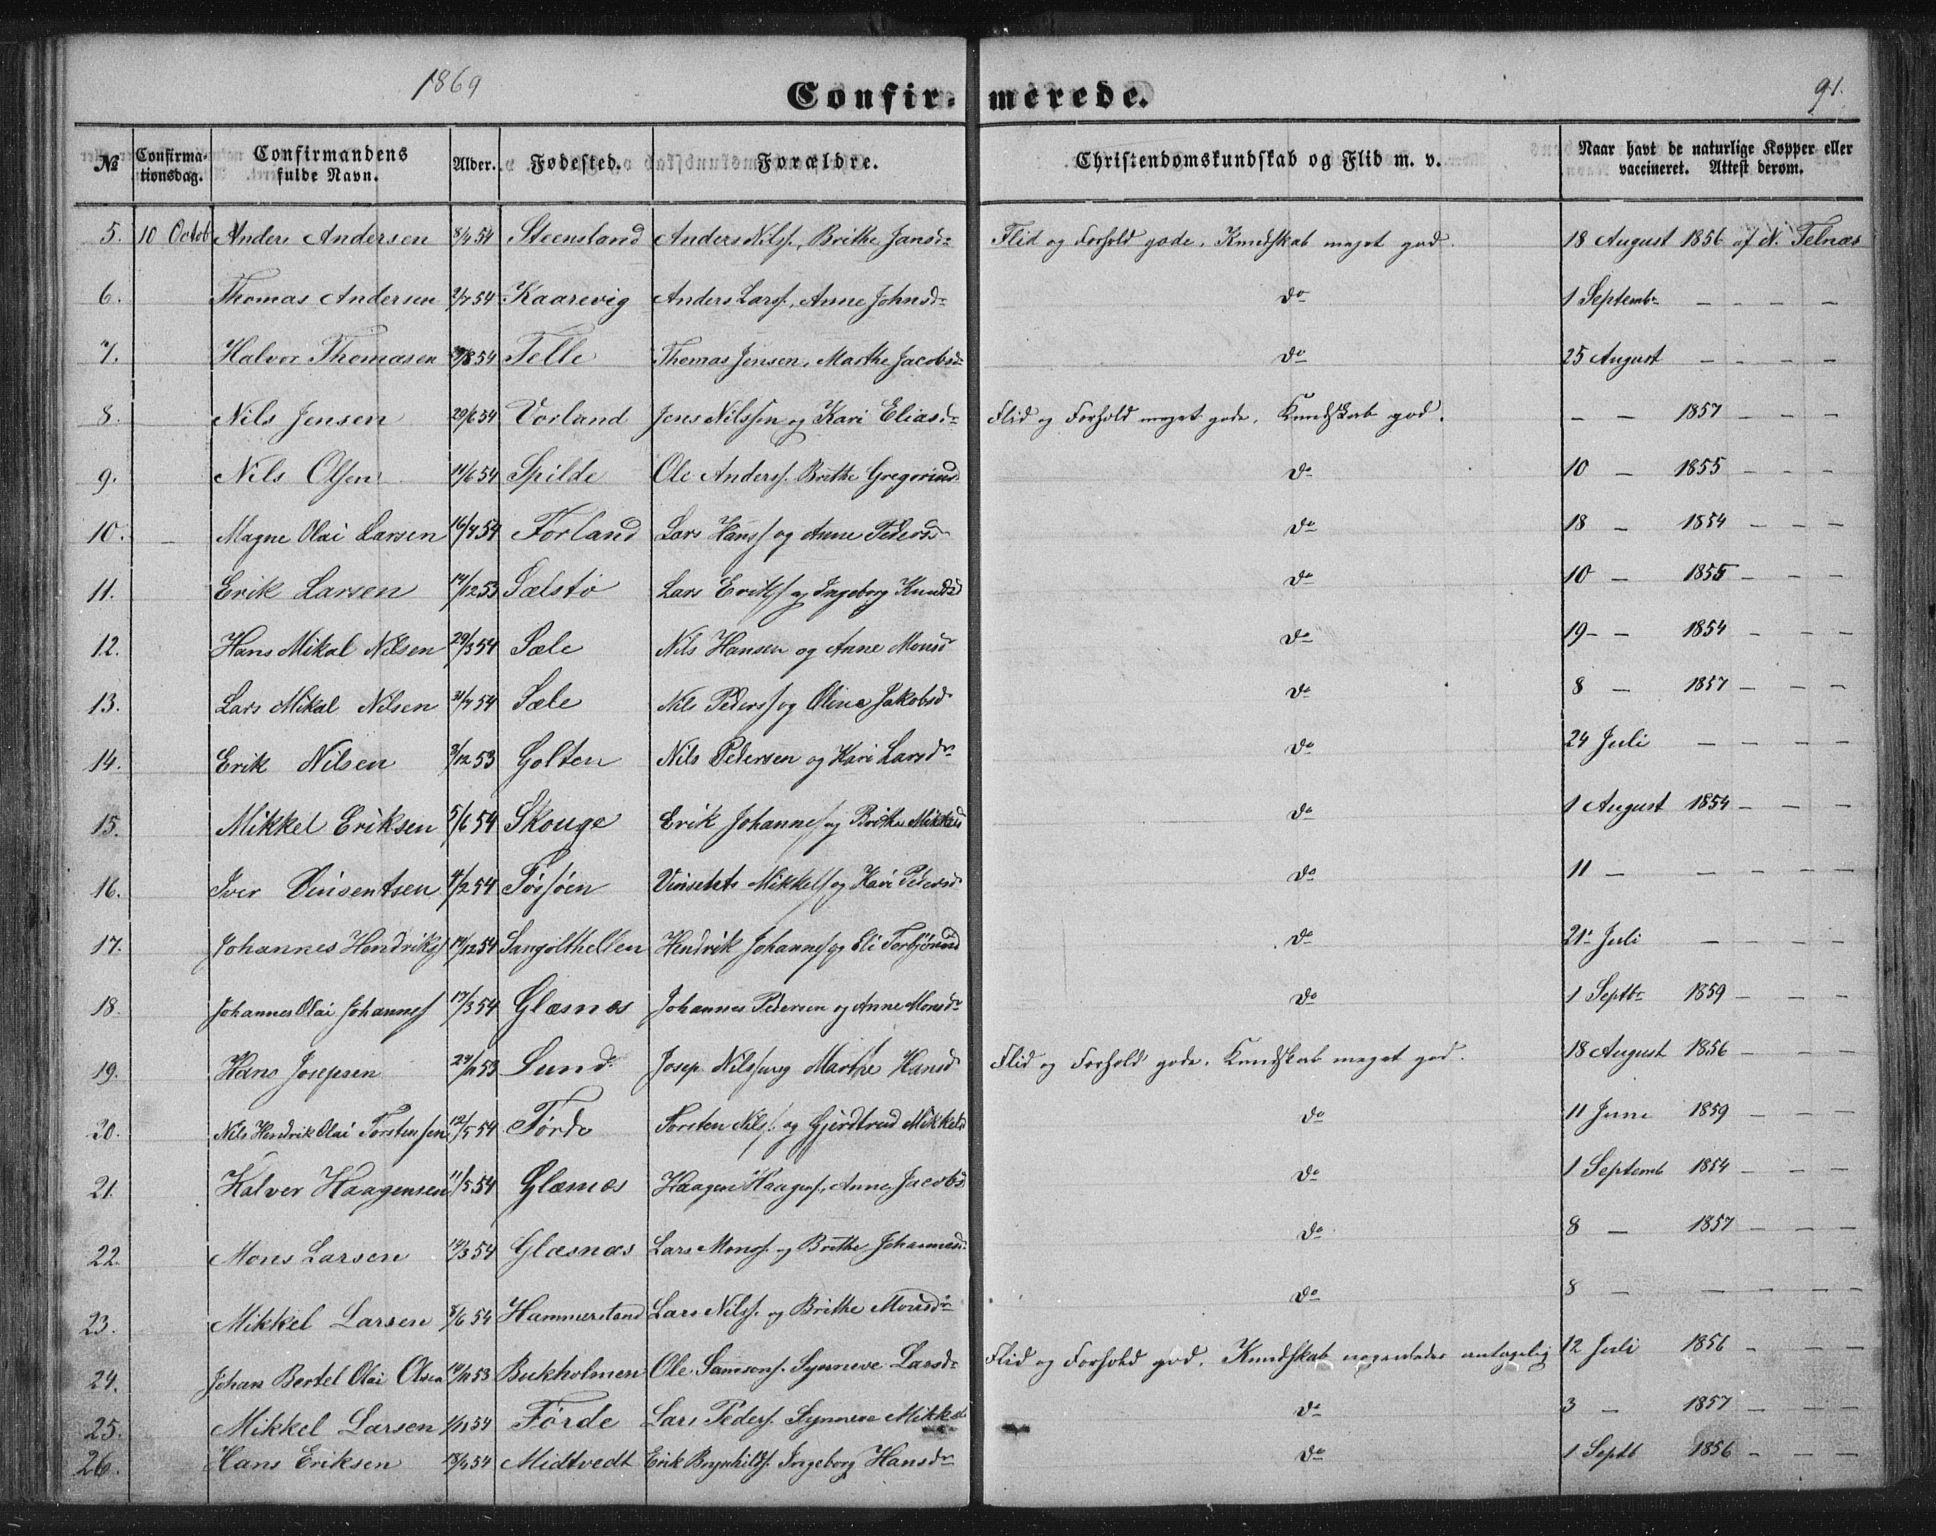 1869
Confir- merede.
91.
№ Confirma-tionsdag. Confirmandens fulde Navn. Alder. Fødested. Forældre. Christendomskundskab og Flid m. v. Naar havt de naturlige Kopper eller vaccineret. Attest derom.
5. 10 Octob Anders Andersen 54 Steensland Anders Nilsf. Brithe Jansd Flid og Forhold gode. Kundskab meget god. 18 August 1856 af N. Telnæs
6. Thomas Andersen 2/7 54 Kaarevig Anders Larsf. Anne Johnsd do 1 Septembr — — — —
7. Halvor Thomasen 54 Telle Thomas Jensen, Marthe Jacobsd do 25 August — — — —
8. Nils Jensen 29/6 54 Vorland Jens Nilssen og Kari Eliasd Flid og Forhold meget gode. Kundskab god. — — 1857 — — —
9. Nils Olsen 14/6 54 Spilde Ole Andersf. Brithe Gregoriusd do 10 — 1855 — — —
10. — Magne Olai Larsen 16/4 54 Forland Lars Hansf og Anne Pedersd do 18 — 1854 — — —
11. Erik Larsen 14/12 53 Sælstø Lars Eriksf og Ingeborg Knudsd do 10 — 1855 — — —
12. Hans Mikal Nilsen 29/3 54 Sæle Nils Hansen og Anne Monsd do 19 — — 1854 — — —
13. Lars Mikal Nilsen 54 Sæle Nils Pedersf og Oline Jakobsd do 8 — 1857 — — —
14. Erik Nilsen 3/12 53 Golten Nils Pedersen og Kari Larsd do 24 Juli — — — —
15. Mikkel Eriksen 5/6 54 Skouge Erik Johannesf og Brithe Mikkelsd do 1 August 1854 — — —
16. Iver Vinsentsen 4/2 54 Tøssøen Vinsents Mikkelsf og Kari Pedersd do 11 — — — — —
17. Johannes Hendriksf 14/12 54 Sangolthellen Hendrik Johannesf og Eli Torbjørnsd do 21 Juli — — — —
18. Johannes Olai Johannesf 17/3 54 Glæsnæs Johannes Pedersen og Anne Monsd do 1 Septbr 1859 — — —
19. Hans Josepsen 53 Sund Josep Nilssen og Marthe Hansd Flid og Forhold gode. Kundskab meget god. 18 August 1856 — — —
20. Nils Hendrik Olai Torstensen 12/5 54 Førde Torsten Nilsf. og Gjerdtrud Mikkelsd do 11 Juni 1859 — — —
21. Halver Haagensen 11/5 54 Glæsnæs Haagen Haagensf. Anne Jacobsd do 1 Septemb 1854 — — —
22. Mons Larsen 14/3 54 Glæsnæs Lars Monsf. og Brithe Johannesd do 8 — 1857 — — —
23. Mikkel Larsen 8/6 54 Hammersland Lars Nilsf. og Brithe Monsdr do 8 — — — — —
24. Johan Bertel Olai Olsen 53 Bukholmen Ole Samsonsf. Synneve Larsd Flid og Forhold god. Kundskab nogenledes antagelig 12 Juli 1856 — — —
25. Mikkel Larsen 54 Førde Lars Pedersf. Synneve Mikkelsd do 3 — 1857 — — —
26. Hans Eriksen 54 Midtvedt Erik Brynhildsf. Ingeborg Hansdr do 1 Septb 1856 — — —